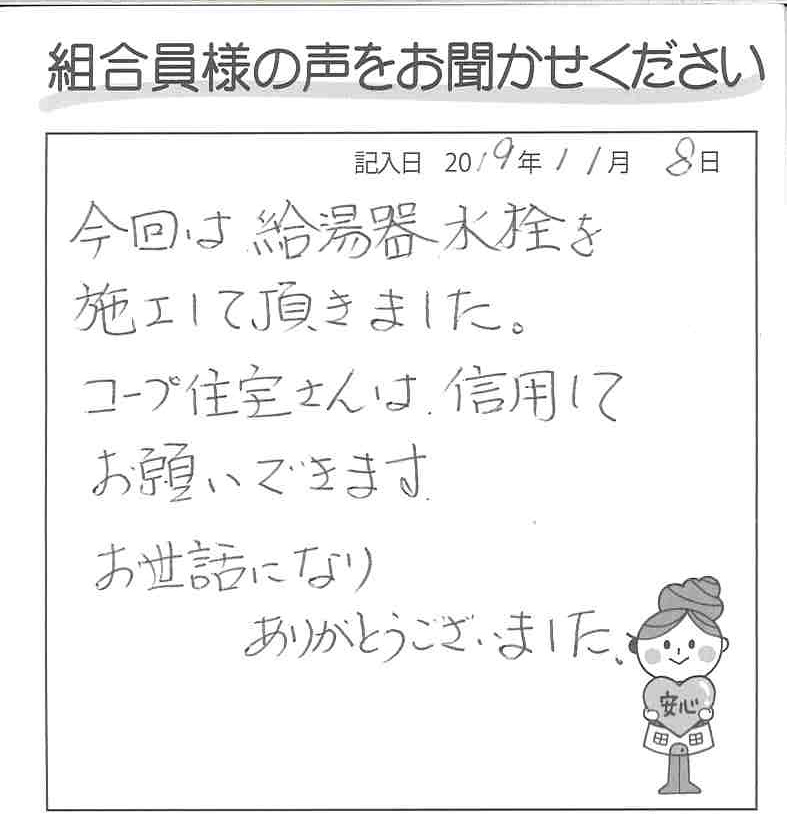 組合員様の声をお聞かせください
記入日 2019年11月8日
今回は給湯器水栓を
施工して頂きました。
コープ住宅さんは、信用して
お願いできます
お世話になり
ありがとうございました、
安心